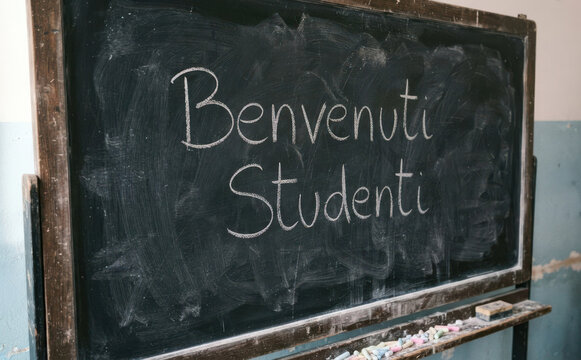 Benvenuti
Studenti